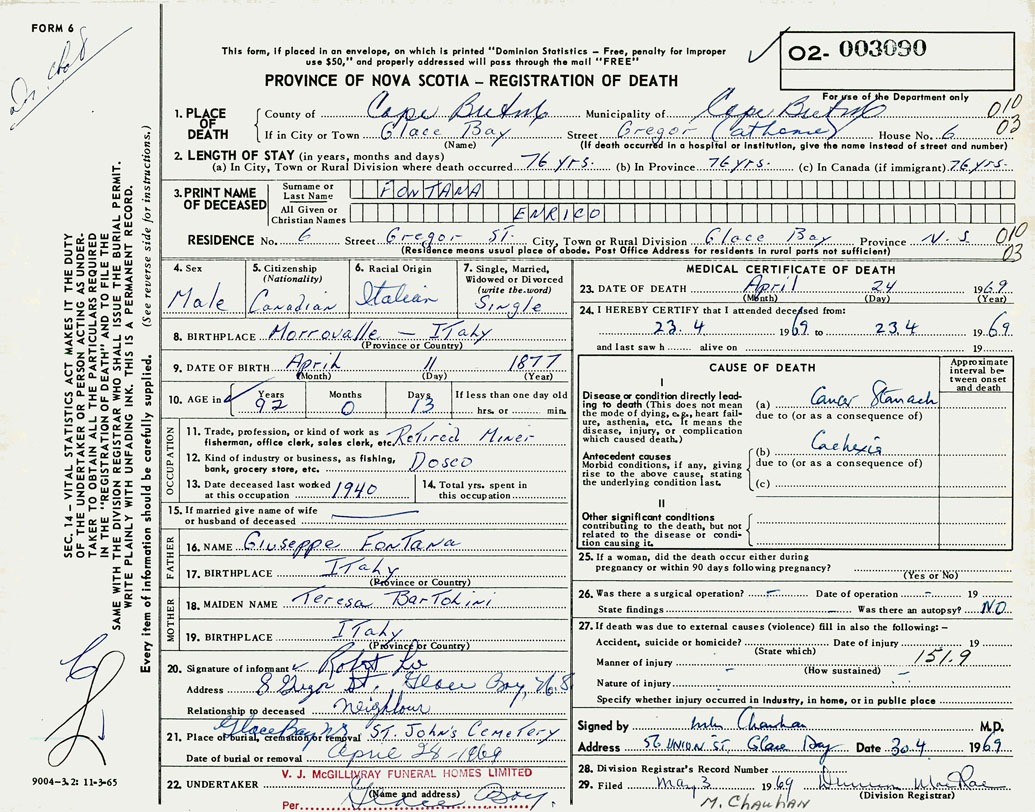 FORM 6
Dr. Chah
This form, if placed in an envelope, on which is printed "Dominion Statistics – Free, penalty for improper
use $50," and properly addressed will pass through the mail "FREE"
PROVINCE OF NOVA SCOTIA – REGISTRATION OF DEATH
O2- 003090
For use of the Department only
010
03
1. PLACE OF DEATH
County of Cape Breton Municipality of Cape Breton
If in City or Town Glace Bay Street Gregor (Catherine) House No. 6
(Name) (If death occurred in a hospital or institution, give the name instead of street and number)
2. LENGTH OF STAY (in years, months and days)
(a) In City, Town or Rural Division where death occurred 76 yrs. (b) In Province 76 yrs. (c) In Canada (if immigrant) 76 yrs.
3. PRINT NAME OF DECEASED
Surname or Last Name FONTANA
All Given or Christian Names ENRICO
RESIDENCE No. 6 Street Gregor St. City, Town or Rural Division Glace Bay Province N.S. 010
(Residence means usual place of abode. Post Office Address for residents in rural parts not sufficient) 03
4. Sex
Male
5. Citizenship
(Nationality)
Canadian
6. Racial Origin
Italian
7. Single, Married,
Widowed or Divorced
(write the word)
Single
8. BIRTHPLACE Morrovalle – Italy
(Province or Country)
9. DATE OF BIRTH April 11 1877
(Month) (Day) (Year)
10. AGE in Years Months Days If less than one day old
92 0 13 hrs. or min.
OCCUPATION
11. Trade, profession, or kind of work as
fisherman, office clerk, sales clerk, etc. Retired Miner
12. Kind of industry or business, as fishing,
bank, grocery store, etc. Dosco
13. Date deceased last worked
at this occupation 1940
14. Total yrs. spent in
this occupation
15. If married give name of wife
or husband of deceased
FATHER
16. NAME Giuseppe Fontana
17. BIRTHPLACE Italy
(Province or Country)
MOTHER
18. MAIDEN NAME Teresa Bartolini
19. BIRTHPLACE Italy
(Province or Country)
20. Signature of informant Robert
Address 8 Gregor St. Glace Bay, N.S
Relationship to deceased Neighbour
21. Place of burial, cremation or removal Glace Bay NS St. John's Cemetery
Date of burial or removal April 26 1969
22. UNDERTAKER V. J. McGILLIVRAY FUNERAL HOMES LIMITED
(Name and address) Glace Bay.
Per
MEDICAL CERTIFICATE OF DEATH
23. DATE OF DEATH April 24 1969
(Month) (Day) (Year)
24. I HEREBY CERTIFY that I attended deceased from:
23.4 1969 to 23.4 1969
and last saw h alive on 19
CAUSE OF DEATH
Approximate
interval be-
tween onset
and death
I
Disease or condition directly lead-
ing to death (This does not mean
the mode of dying, e.g., heart fail-
ure, asthenia, etc. It means the
disease, injury, or complication
which caused death.)
(a) Cancer Stomach
due to (or as a consequence of)
Antecedent causes
Morbid conditions, if any, giving
rise to the above cause, stating
the underlying condition last.
(b) Cachexia
due to (or as a consequence of)
(c)
II
Other significant conditions
contributing to the death, but not
related to the disease or condi-
tion causing it.
25. If a woman, did the death occur either during
pregnancy or within 90 days following pregnancy?
(Yes or No)
26. Was there a surgical operation? – Date of operation – 19
State findings Was there an autopsy? NO
27. If death was due to external causes (violence) fill in also the following: –
Accident, suicide or homicide? Date of injury 19
(State which) 151.9
Manner of injury
(How sustained)
Nature of injury
Specify whether injury occurred in Industry, in home, or in public place
Signed by Chauhan M.D.
Address 56 UNION ST. Glace Bay Date 30.4 1969
28. Division Registrar's Record Number
29. Filed May 3 1969
(Division Registrar)
M. Chauhan
SEC. 14 – VITAL STATISTICS ACT MAKES IT THE DUTY
OF THE UNDERTAKER OR PERSON ACTING AS UNDER-
TAKER TO OBTAIN ALL THE PARTICULARS REQUIRED
IN THE "REGISTRATION OF DEATH" AND TO FILE THE
SAME WITH THE DIVISION REGISTRAR WHO SHALL ISSUE THE BURIAL PERMIT.
WRITE PLAINLY WITH UNFADING INK. THIS IS A PERMANENT RECORD.
Every item of information should be carefully supplied. (See reverse side for instructions.)
9004-3.2: 11-3-65